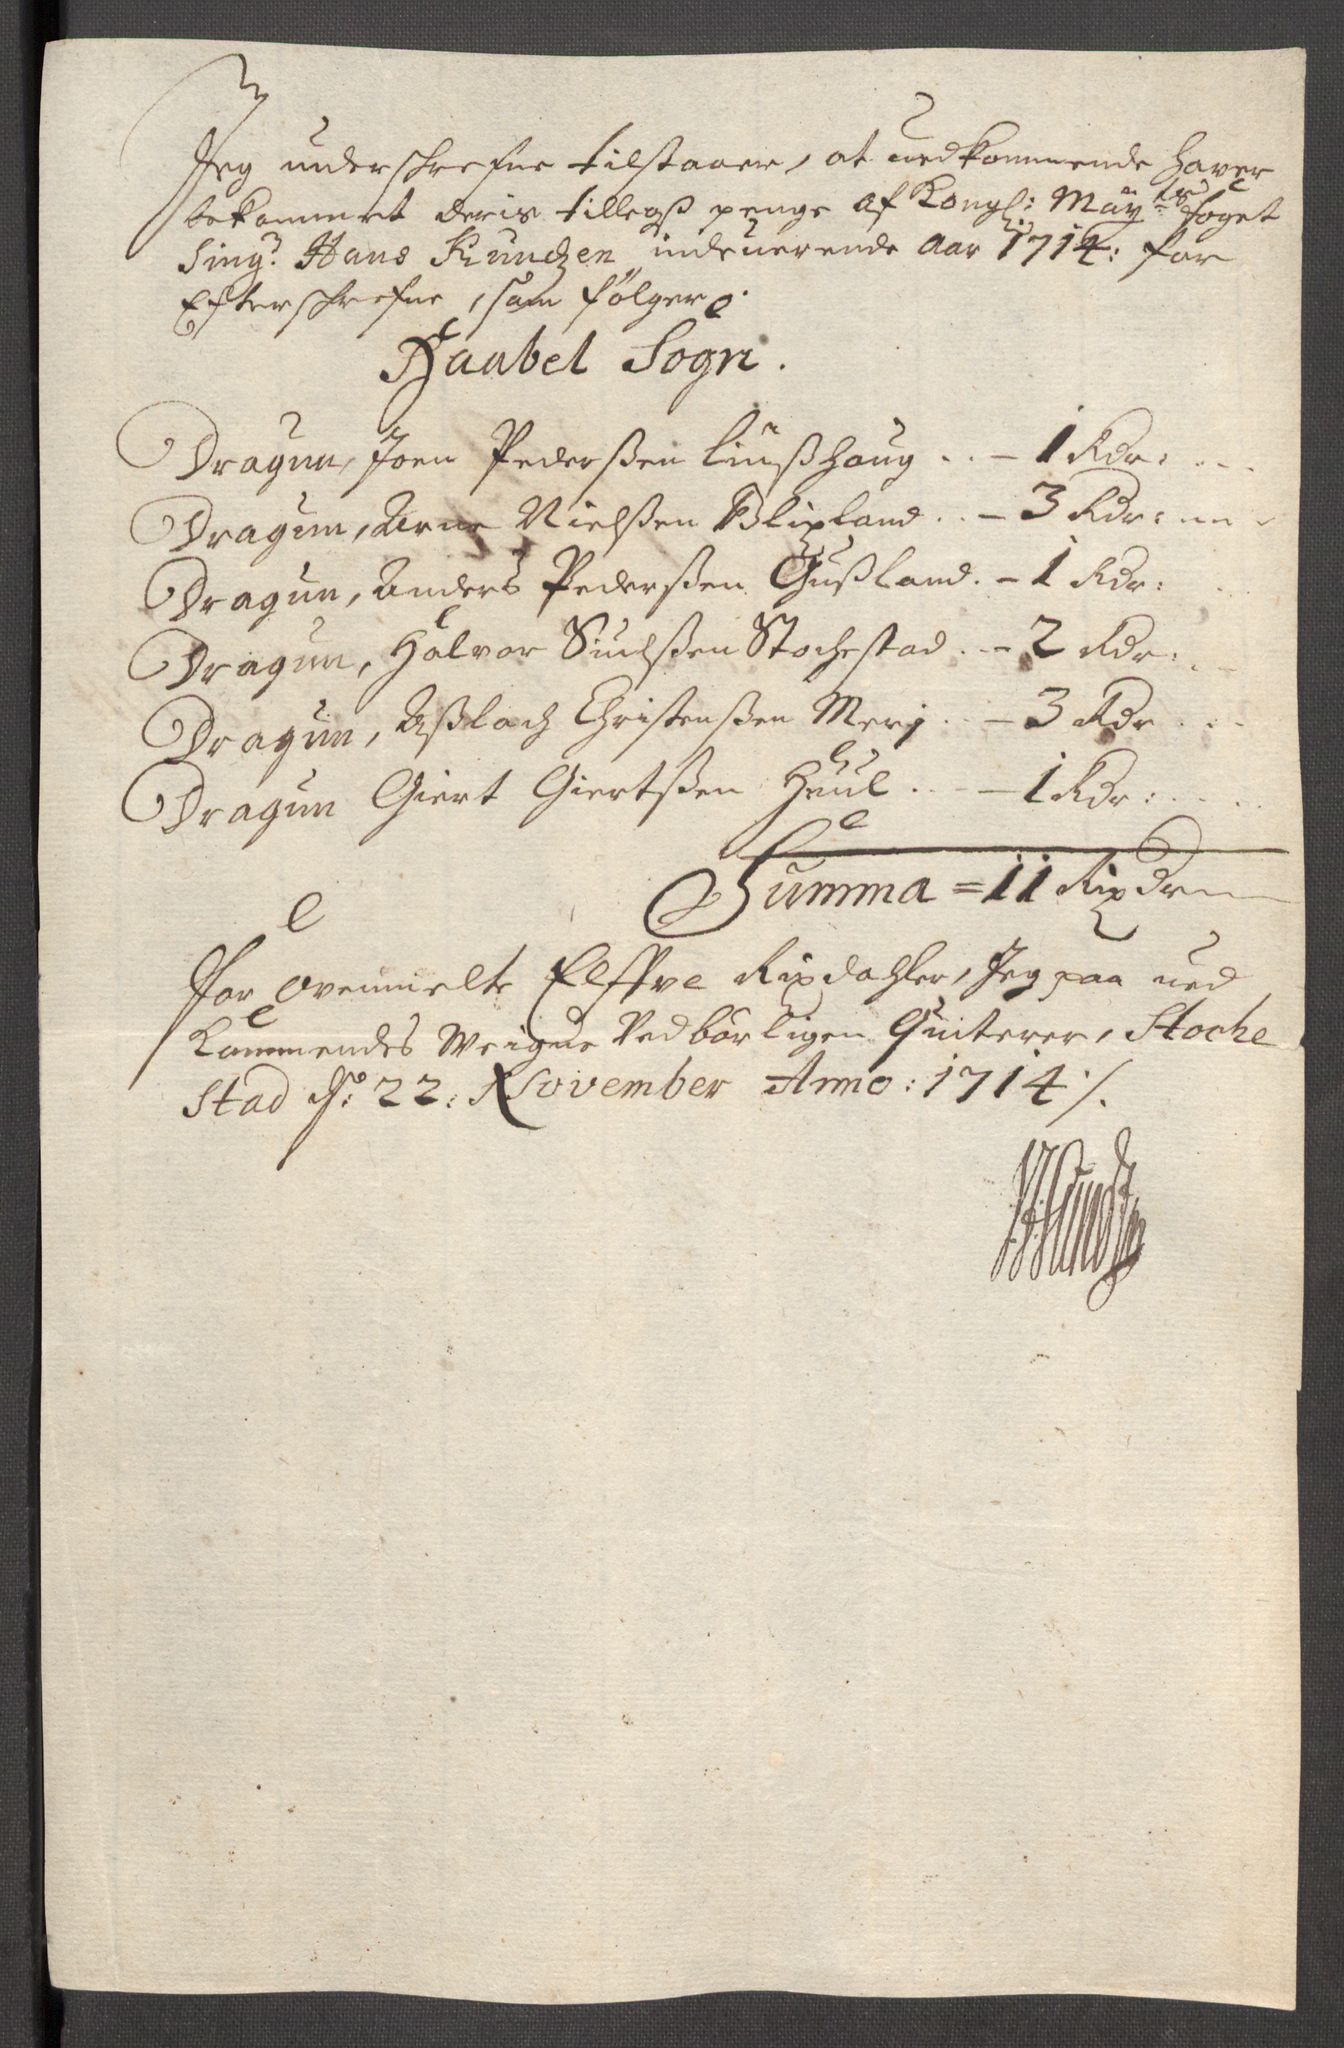 Jeg underschrefne tilstaaer, at uedkommende haver
bekommet deris tillegß penge af Kongl: Mayts foget
Sing: Hans Kundzen indeuerende Aar 1714: for
Efterschrefne, som følger
Haabel Sogn.
Dragun, Joen Pederßen Liußhaug .. - 1 Rdr: ...
Dragun, Arne Nielßen Blixland .. - 3 Rdr:
Dragun, Anders Pederßen Gußland. - 1 Rdr:
Dragun, Halvor Siulßen Stochestad .. - 2 Rdr:
Dragun, Aßlach Christenßen Merj .. - 3 Rdr
Dragun Giert Giertßen Huul ... - 1 Rdr:
Summa = 11 Rixdr
For ovenmelte Elffve Rixdahler, Jeg paa ued
Kommendes Weigne Vedbørligen Quiterer, Stoche
Stad Do: 22: November Anno: 1714 /.